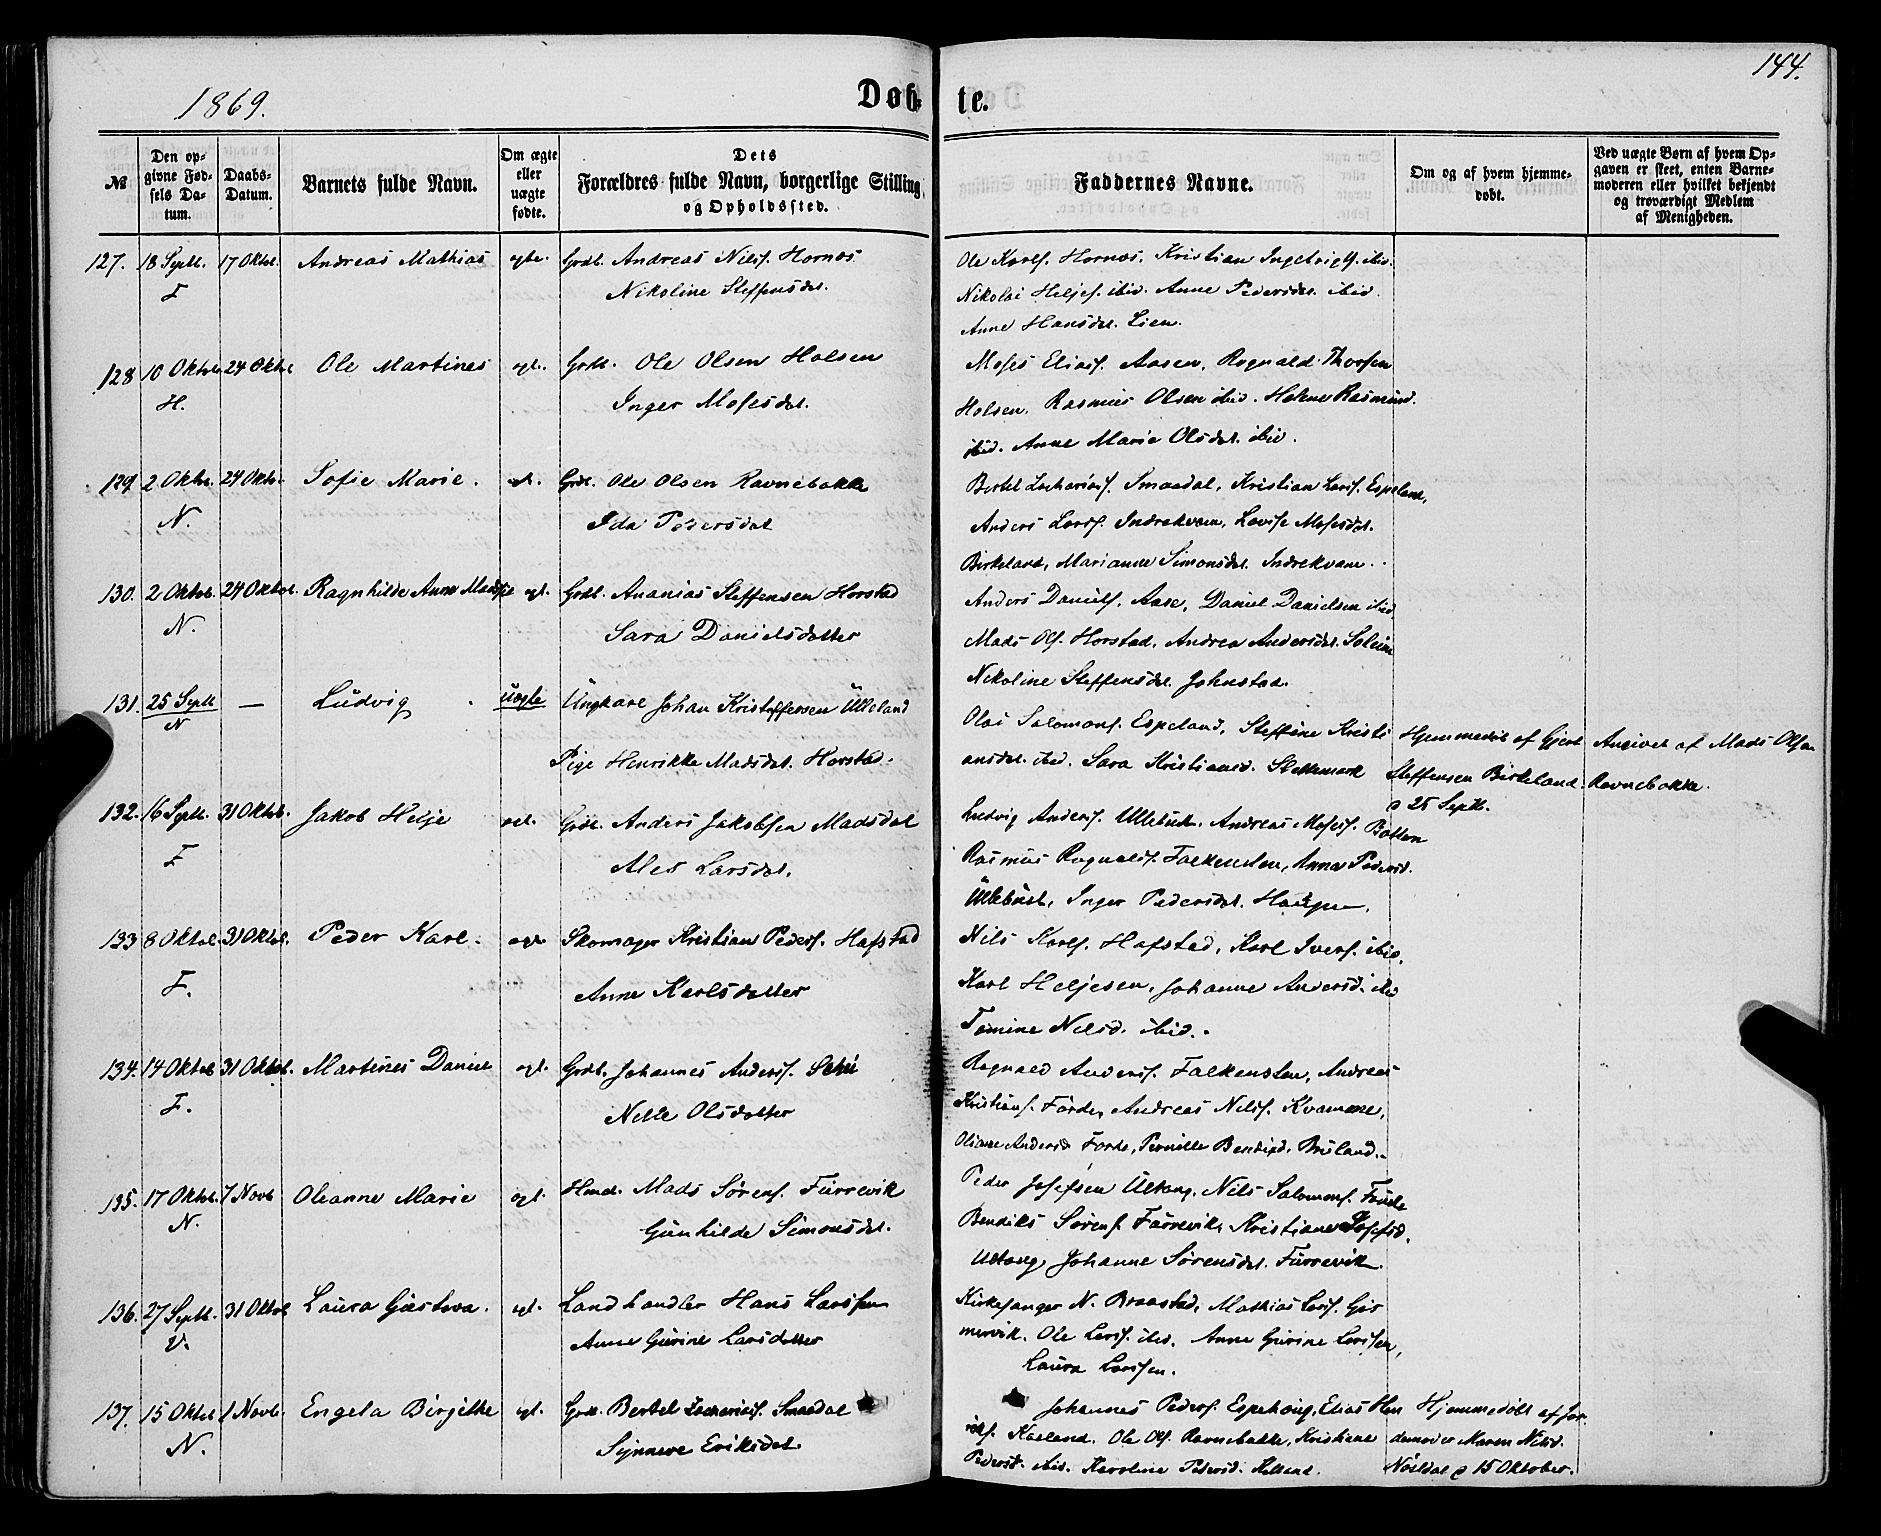 144.
1869.
Døb- te.
№
Den opgivne Fødsels Datum.
Daabs-Datum.
Barnets fulde Navn.
Om ægte eller uægte fødte.
Dets Forældres fulde Navn, borgerlige Stilling, og Opholdssted.
Faddernes Navne.
Om og af hvem hjemmedøbt.
Ved uægte Børn af hvem Opgaven er skeet, enten Barnemoderen eller hvilket bekjendt og troværdigt Medlem af Menigheden.
127. 18 Septb. 17 Oktbr. Andreas Mathias ægte. Grdb. Andreas Nilss. Hornes
F Nikoline Steffensdat.
Ole Karls. Hornes. Kristian Ingebrigts. ibid.
Nikolai Heljes. ibid. Anne Pedersdat. ibid.
Anne Hansdat. Lien.
128 10 Oktob. 24 Oktbr Ole Martines ægt. Grdb. Ole Olsen Holsen
H. Inger Mosesdat.
Moses Eliass. Aasen, Rognald Thorsen
Holsen, Rasmus Olsen ibid. Helene Rasmusd.
ibid. Anne Marie Olsdat. ibid.
129 2 Oktbr. 24 Oktbr. Sofie Marie. ægt. Grdb. Ole Olsen Ravnebakke
N. Ida Pedersdat
Bertel Zacharias. Smaadal, Kristian Larss. Espeland,
Anders Larss. Indrekvam, Lovise Mosesdat.
Birkeland, Marianne Simonsdat. Indrekvam.
130. 2 Oktob. 24 Oktob. Ragnhilde Anne Madsine ægt. Grdb. Ananias Steffensen Horstad
N. Sara Danielsdatter
Anders Daniels. Aase, Daniel Danielsen ibid
Mads Ols. Horstad, Andrea Andersdat. Soleim
Nikoline Steffensdat. Johnstad.
131. 25 Septb — Ludvig uægte Ungkarl Johan Kristoffersen Ulleland
N Pige Henrikke Madsdat. Horstad.
Olai Salomons. Espeland, Steffine Kristi
ansdat. ibid. Sara Kristiansd.
Hjemmedøbt af Gjert
Steffensen Birkeland
25 Septb.
Angivet af Mads Olsen
Ravnebakke.
132. 16 Septb. 31 Oktob. Jakob Helje ægt. Grdb. Anders Jakobsen Madsdal
F Ales Larsdat.
Ludvig Anders. Ullebust, Andreas Moses. Botten
Rasmus Rognalds. Falkensten, Anna Pedersd.
Ullebust, Inger Pedersdat. Haugen.
133 8 Oktob. 31 Oktob. Peder Karl. ægte Skomager Kristian Peders. Hafstad
F. Anne Karlsdatter
Nils Karls. Hafstad, Karl Ivers. ibid,
Karl Heljesen, Johanne Andersd. ibid
Tomine Nilsd. ibid.
134. 14 Oktob 31 Oktob. Martines Daniel ægt. Grdb. Johannes Anders.
F. Nille Olsdatter
Rognald Anders. Falkensten, Andreas
Kristians. Førde, Andreas Nilss. Kvamme,
Oliane Andersd Førde, Pernille Bendixd. Bruland.
135. 17 Oktob. 7 Novb Oleanne Marie ægt. Hmd. Mads Sørens. Furrevik
N. Gunhilde Simonsdat.
Peder Josefsen Ultang, Nils Salomons.
Bendiks Sørens. Furrevik, Kristiane Josefsd.
Ultang, Johanne Sørensdat. Furrevik.
136. 27 Septb. 31 Oktob Laura Gustava. ægt. Landhandler Hans Larssen
V. Anne Gurine Larsdatter
Kirkesanger N. Braastad, Mathias Larss. Gir
mervik. Ole Larss. ibid. Anne Gurine Larssen,
Laura Larssen.
137. 15 Oktob 1 Novb. Engela Birgitte ægt. Grdb. Bertel Zacharias. Smaadal
N. Synneve Eriksdat.
Johannes Peders. Espehaug, Elias Hen
riks. Karland. Ole Ols. Ravnebakke, Kristiane
Pedersd. ibid. Karoline Pedersd.
Hjemmedøbt af Jor
demoder Maren Nilsd.
15 Oktober.